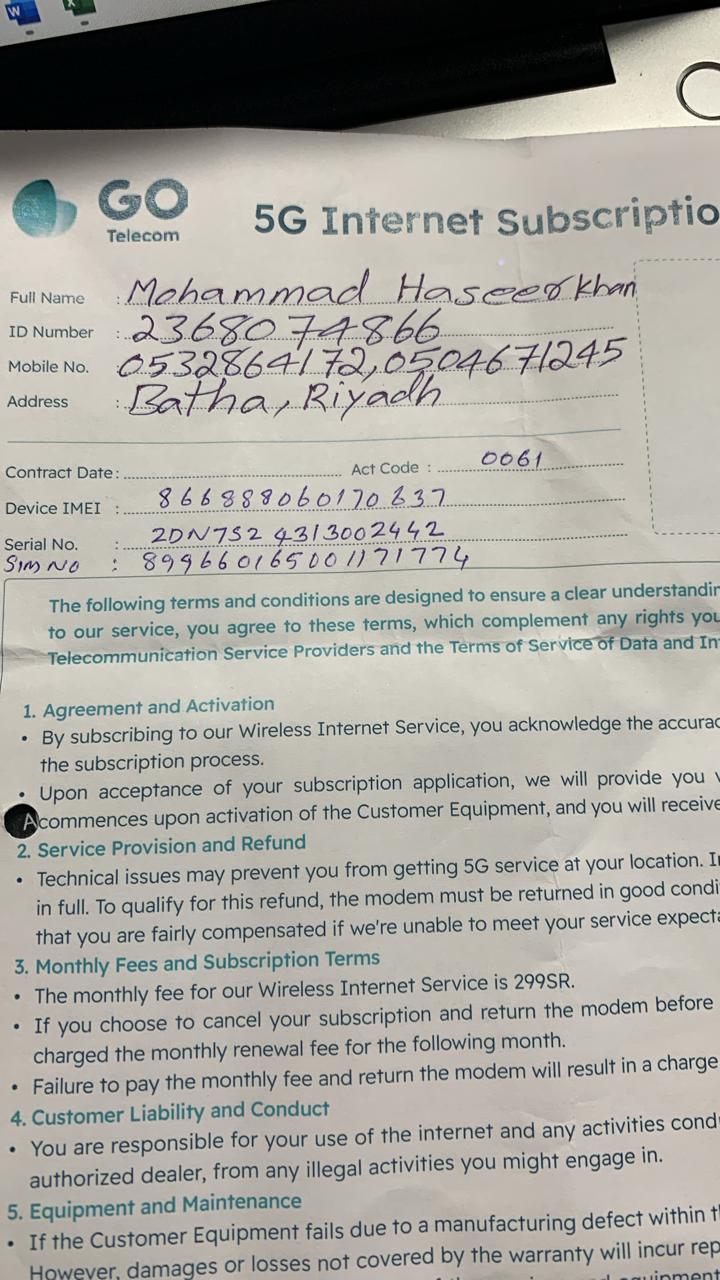 W X
GO
Telecom
5G Internet Subscriptio
Full Name : Mohammad Haseeb Khan
ID Number : 2368074866
Mobile No. : 0532864172, 0504671245
Address : Batha, Riyadh
Contract Date: Act Code : 0061
Device IMEI : 866888060170637
Serial No. : 2DN7S24313002442
SIM NO : 899660165001171774
The following terms and conditions are designed to ensure a clear understandin
to our service, you agree to these terms, which complement any rights you
Telecommunication Service Providers and the Terms of Service of Data and In
1. Agreement and Activation
• By subscribing to our Wireless Internet Service, you acknowledge the accurac
the subscription process.
• Upon acceptance of your subscription application, we will provide you
Acommences upon activation of the Customer Equipment, and you will receive
2. Service Provision and Refund
• Technical issues may prevent you from getting 5G service at your location. I
in full. To qualify for this refund, the modem must be returned in good condi
that you are fairly compensated if we're unable to meet your service expect
3. Monthly Fees and Subscription Terms
• The monthly fee for our Wireless Internet Service is 299SR.
• If you choose to cancel your subscription and return the modem before
charged the monthly renewal fee for the following month.
• Failure to pay the monthly fee and return the modem will result in a charge
4. Customer Liability and Conduct
• You are responsible for your use of the internet and any activities cond
authorized dealer, from any illegal activities you might engage in.
5. Equipment and Maintenance
• If the Customer Equipment fails due to a manufacturing defect within t
However, damages or losses not covered by the warranty will incur rep